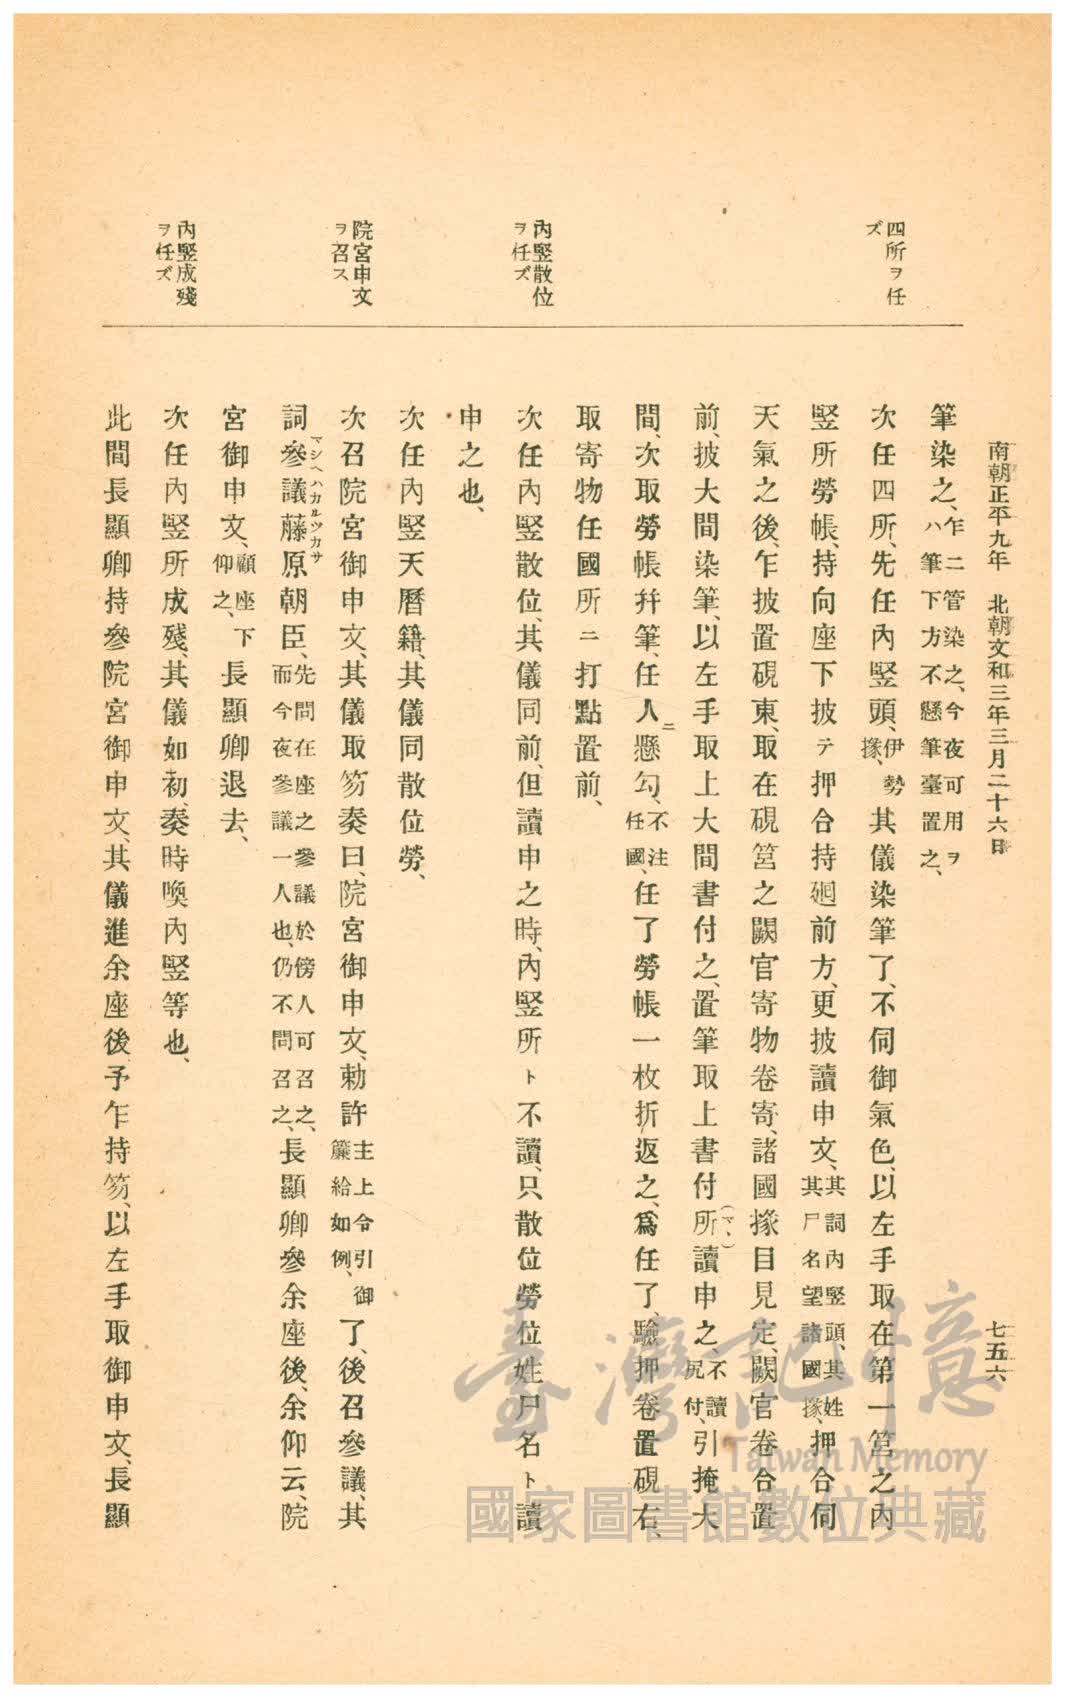 南朝正平九年 北朝文和三年三月二十六日 七五六
四所ヲ任
ズ
內豎散位
ヲ任ズ
院宮申文
ヲ召ス
內豎成殘
ヲ任ズ
筆染之、乍二管染之、今夜可用ヲハ筆下方不懸筆臺置之、
次任四所、先任內豎頭、伊勢掾、其儀染筆了、不伺御氣色、以左手取在第一筥之內
豎所勞帳、持向座下披テ押合持廻前方、更披讀申文、其詞內豎頭、其姓其尸名望諸國掾、押合伺
天氣之後、乍披置硯東、取在硯筥之闕官寄物卷寄、諸國掾目見定、闕官卷合置
前、披大間染筆、以左手取上大間書付之、置筆取上書付所(マヽ)讀申之、不讀尻付、引掩大
間、次取勞帳幷筆、任人ニ懸勾、不注任國、任了勞帳一枚折返之、爲任了、驗押卷置硯右、
取寄物任國所ニ打點置前、
次任內豎散位、其儀同前、但讀申之時、內豎所ト不讀、只散位勞位姓尸名ト讀
申之也、
次任內豎天曆籍、其儀同散位勞、
次召院宮御申文、其儀取笏奏曰、院宮御申文、勅許主上令引御簾給如例、了、後召參議、其
詞參議藤原朝臣、マシヘハカルツカサ先問在座之參議於傍人可召之、而今夜參議一人也、仍不問召之、長顯卿參余座後、余仰云、院
宮御申文、顧座下仰之、長顯卿退去、
次任內豎所成殘、其儀如初、奏時喚內豎等也、
此間長顯卿持參院宮御申文、其儀進余座後、予乍持笏、以左手取御申文、長顯
臺灣記憶
Taiwan Memory
國家圖書館數位典藏